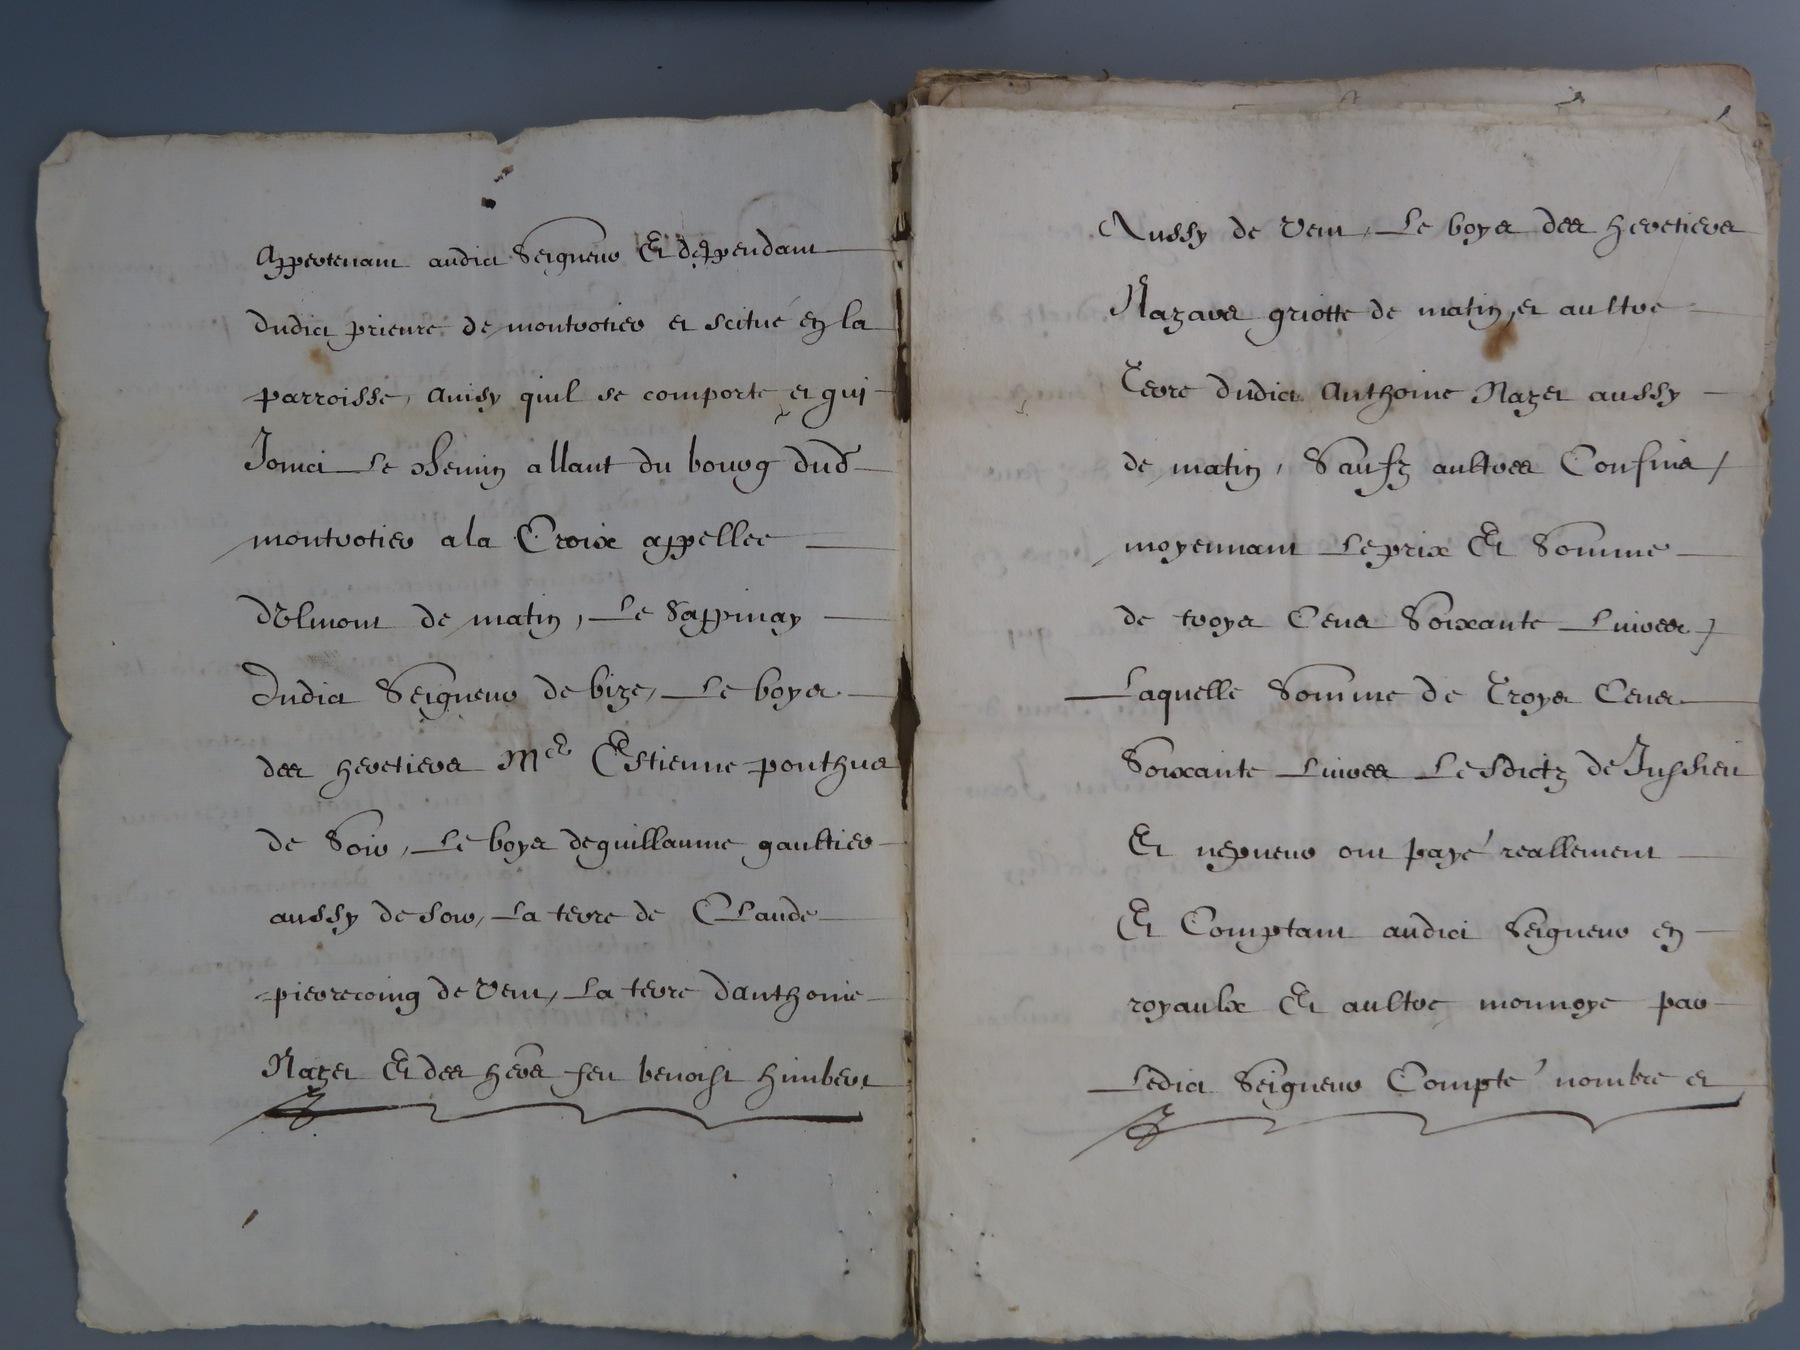 Appertenant audict Seigneur Et deppendant
dudict prieuré de montrotier et scitué en la
parroisse, Ainsy quil se comporte et qui
Joinct Le chemin allant du bourg dud
montrotier a la Croix appellee
dUlmont de matin, Le Sappinay
dudict Seigneur de bize, Le boys
des heretiers Me Estienne ponthus
de Soir, Le boys de guillaume gaultier
aussy de soir, La terre de CLaude
pierrecoing de Vent, La terre danthoine
Nazet Et des hers feu benoist himbert
Aussy de Vent, Le boys des heretiers
Nazares griotte de matin, et aultre
Terre dudict Anthoine Nazet aussy
de matin, Saufz aultres Confins /
moyennant Le prix Et Somme
de troys Cens Soixante Livres /
Laquelle Somme de Troys Cens
Soixante Livres Lesdictz de Jussieu
Et nepveur ont payé reallement
Et Comptant audict Seigneur en
royaulx Et aultre monnoye par
Ledict Seigneur Compté nombre et